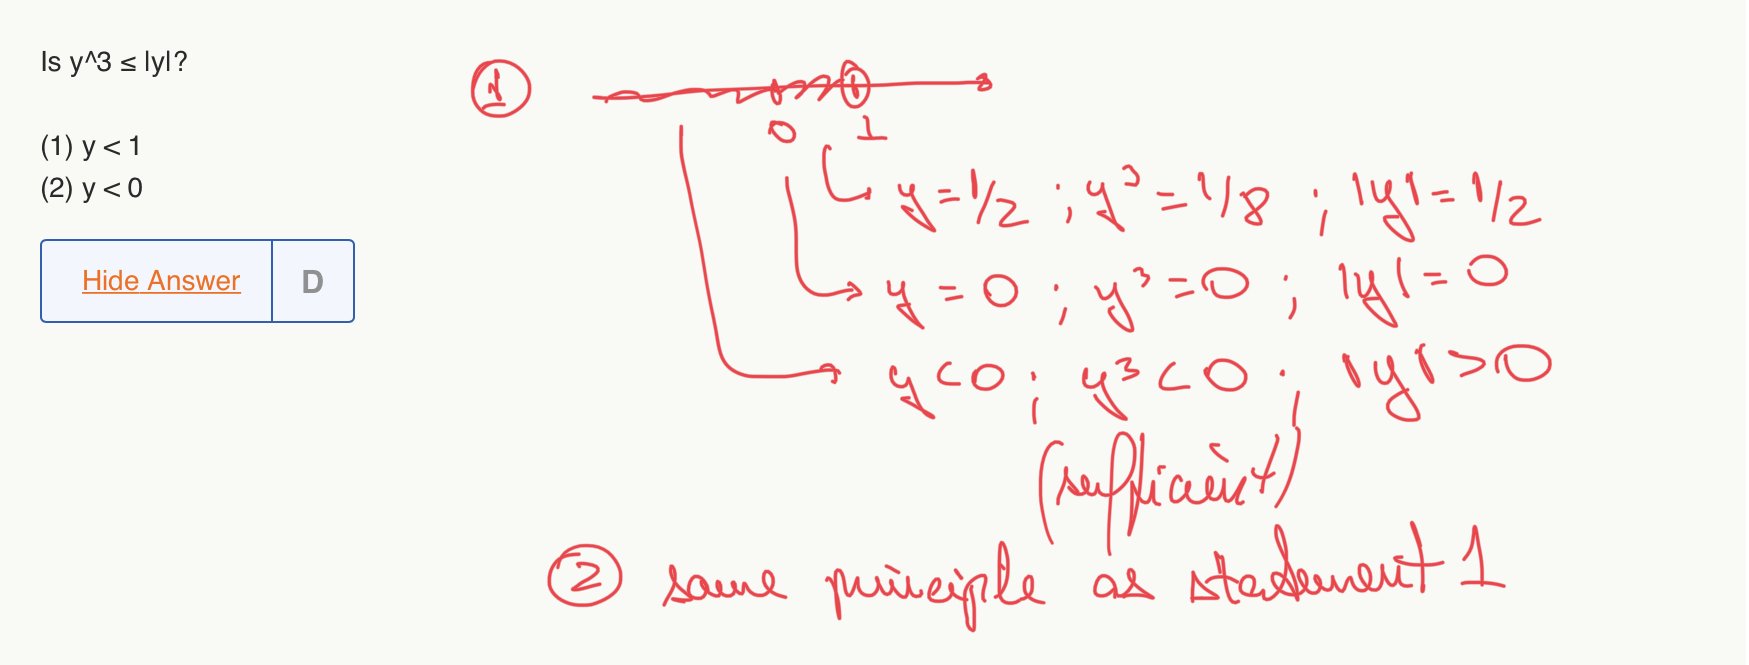 Is y^3 ≤ |y|?
(1) y < 1
(2) y < 0
Hide Answer D
1
0 1
y = 1/2 ; y³ = 1/8 ; |y| = 1/2
y = 0 ; y³ = 0 ; |y| = 0
y < 0 ; y³ < 0 ; |y| > 0
(sufficient)
2 same principle as statement 1